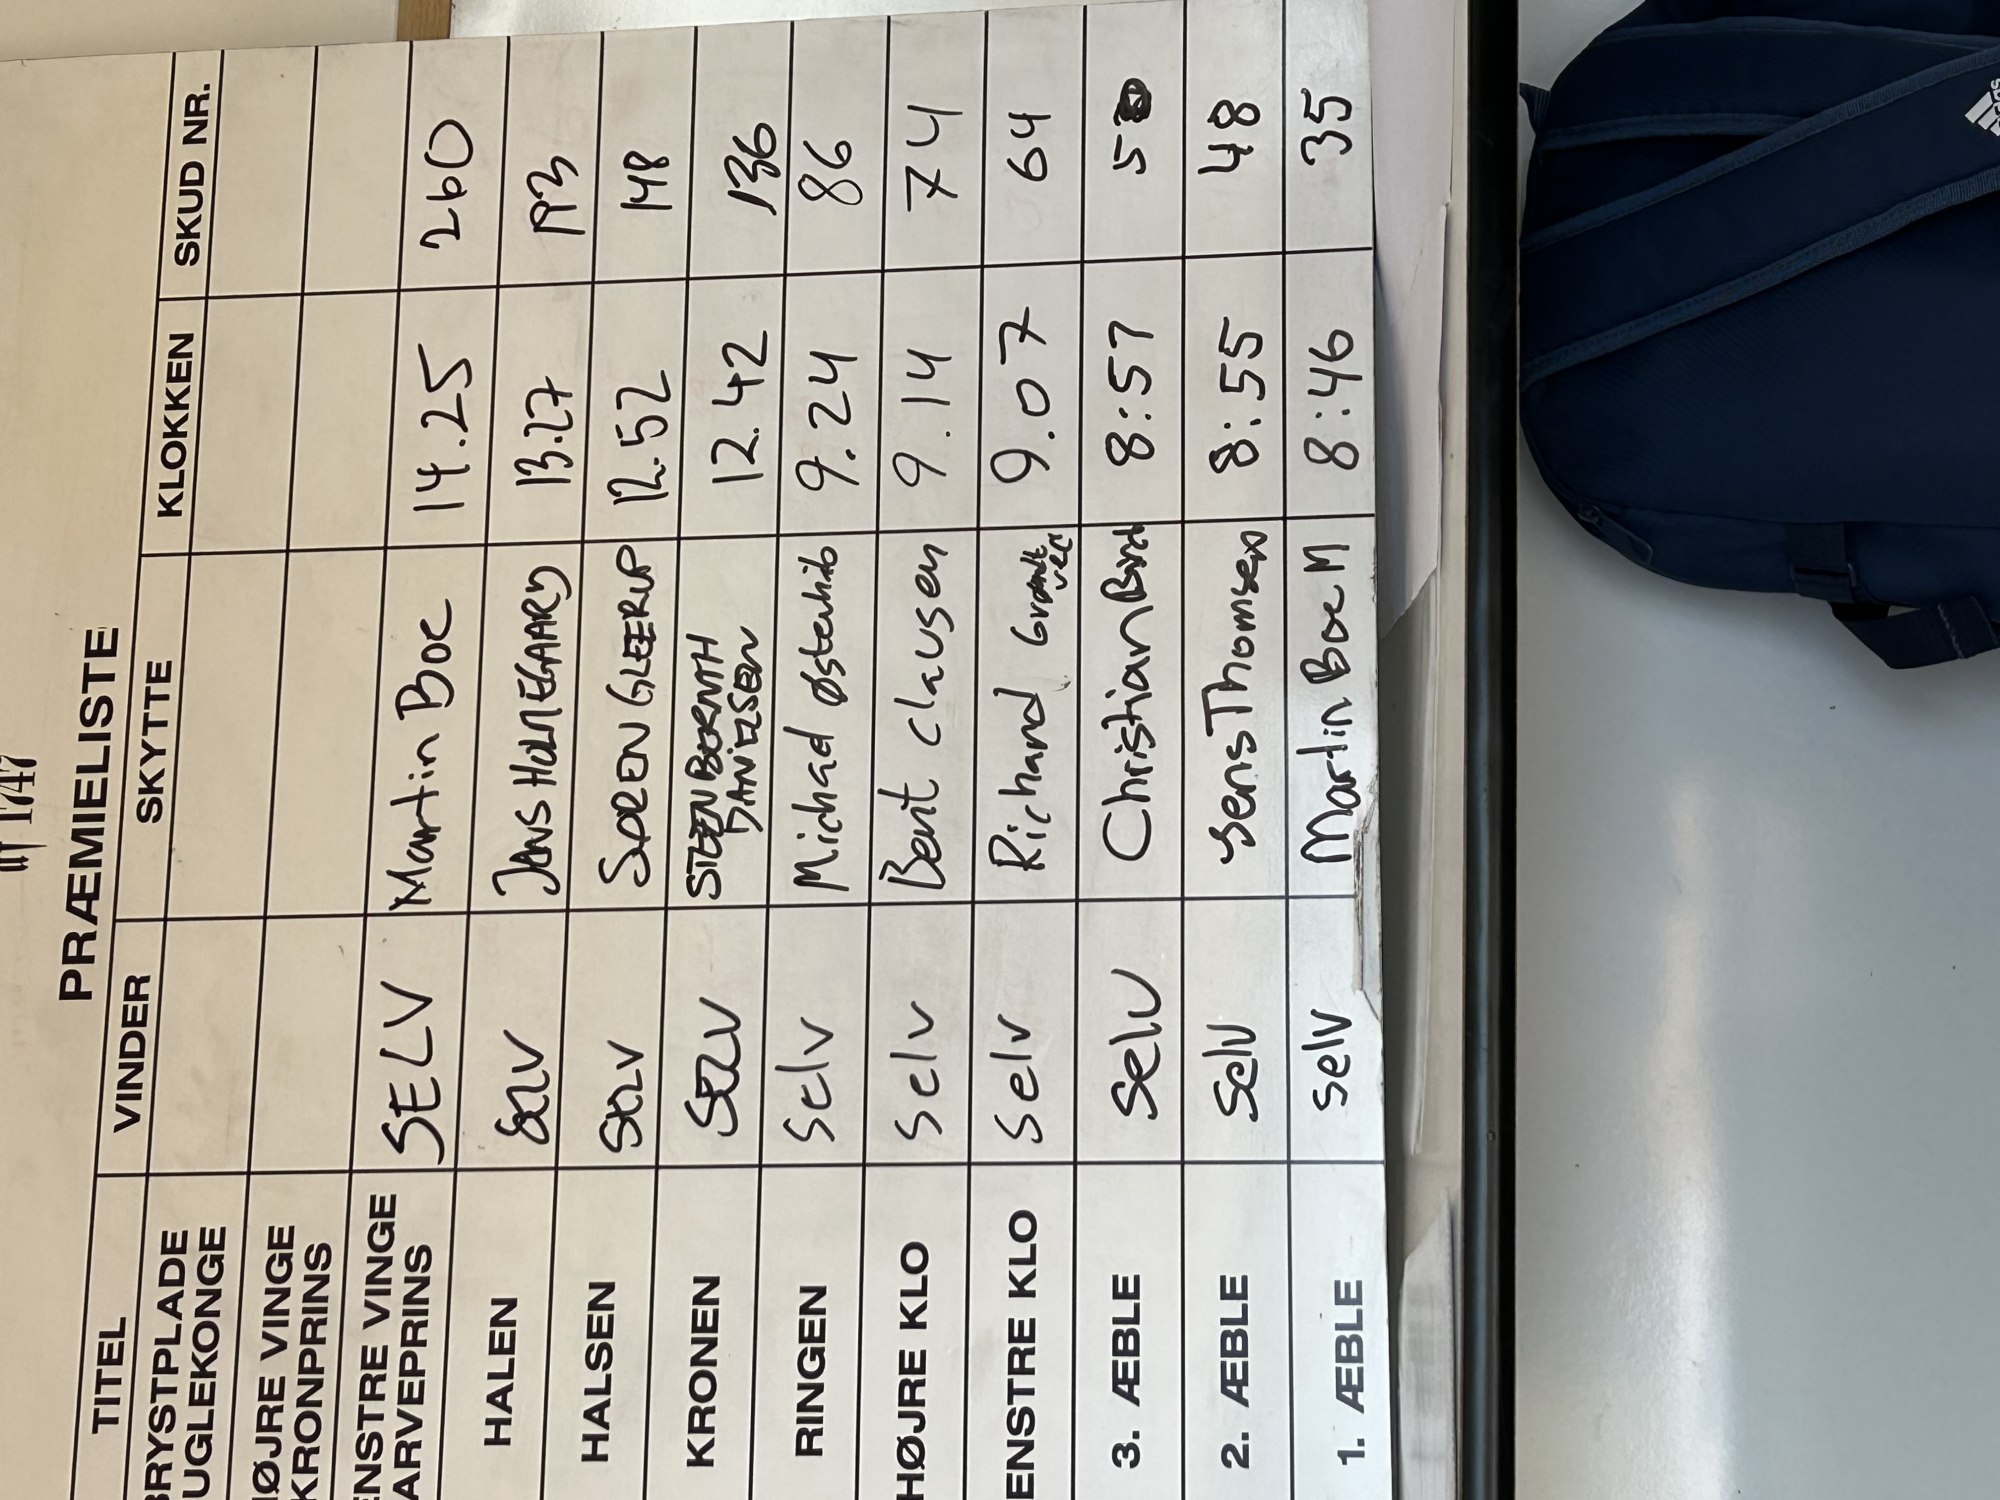 1747
PRÆMIELISTE
TITEL VINDER SKYTTE KLOKKEN SKUD NR.
BRYSTPLADE
UGLEKONGE
HØJRE VINGE
KRONPRINS
ENSTRE VINGE
ARVEPRINS SELV Martin Boe 14.25 260
HALEN SELV JENS HOLMEGAARD 13.27 193
HALSEN SELV SØREN GLEERUP 12.52 148
KRONEN SELV STEEN BERNTH
DANIELSEN 12.42 136
RINGEN Selv Michael Østerhåb 9.24 86
HØJRE KLO Selv Bent Clausen 9.14 74
ENSTRE KLO Selv Richard 9.07 64
3. ÆBLE Selv Christian 8:57 5
2. ÆBLE Selv Jens Thomsen 8:55 48
1. ÆBLE selv Martin Boe M 8:46 35
adidas